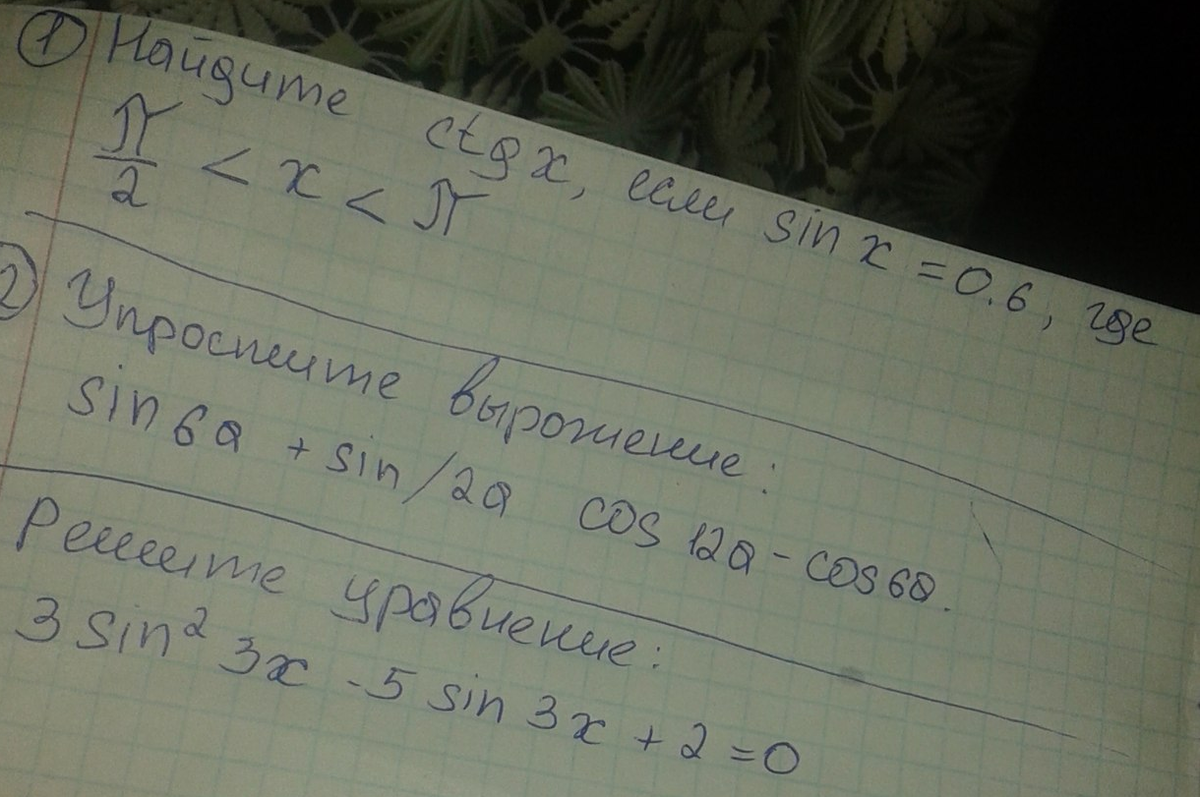 1 Найдите ctgx, если sin x = 0.6, где
π/2 < x < π
2) Упростите выражение:
sin 6a + sin/2a cos 12a - cos6a.
Решите уравнение:
3 sin² 3x - 5 sin 3x + 2 = 0